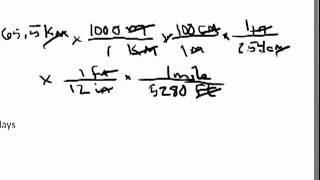 65.5 km × 1000 m / 1 km × 100 cm / 1 m × 1 in / 2.54 cm
× 1 ft / 12 in × 1 mile / 5280 ft
days